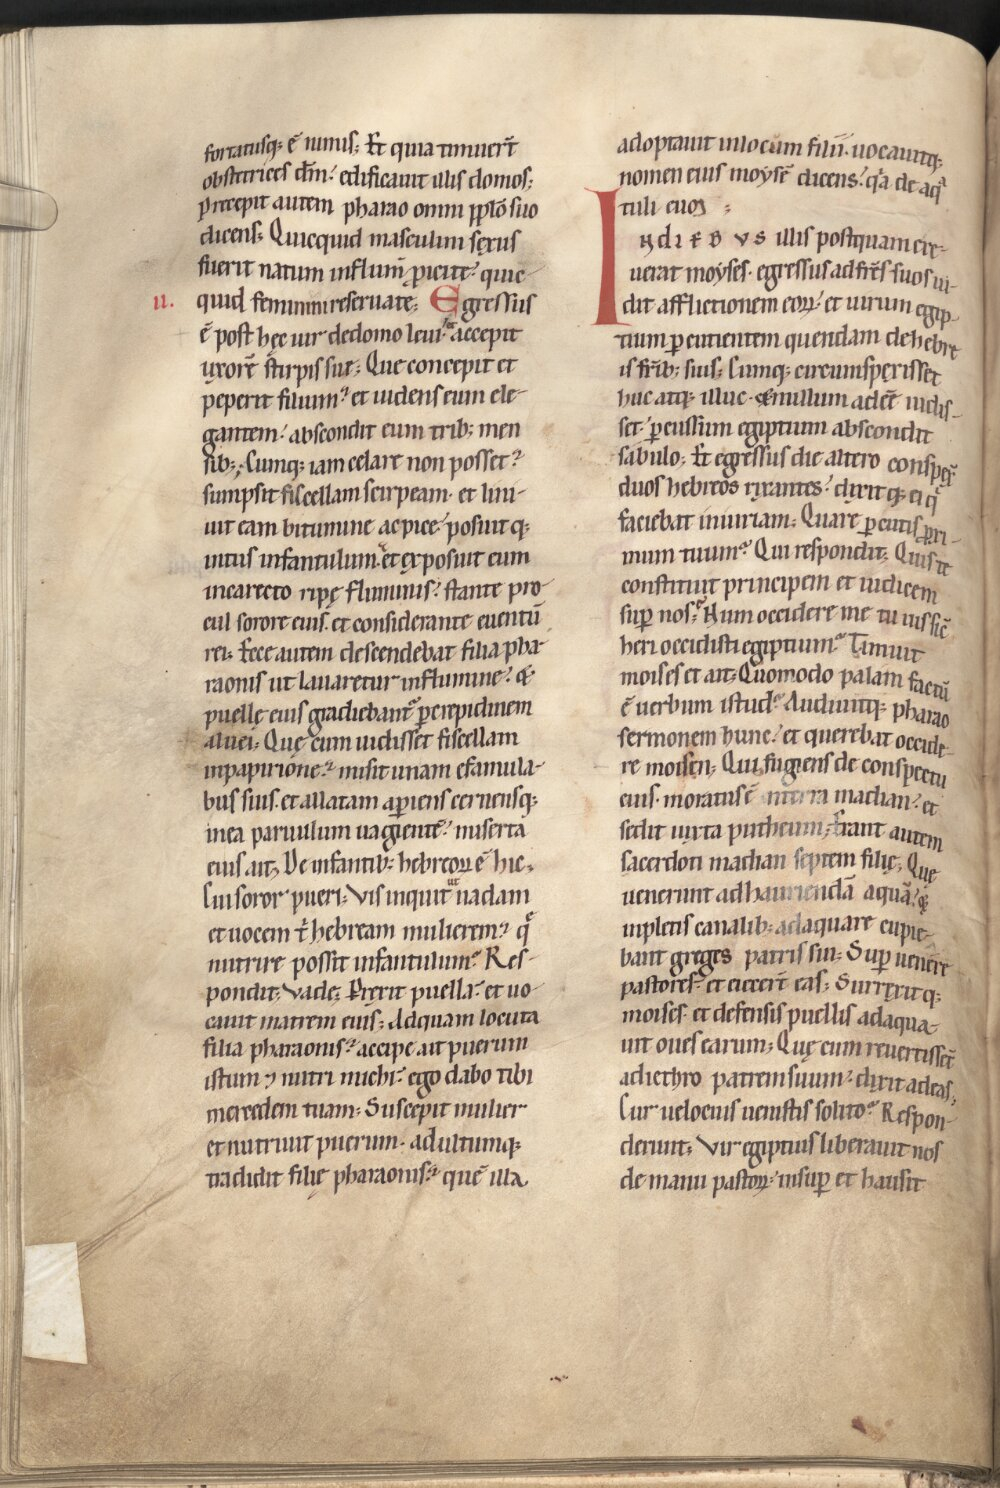 fortatusq; ē nimis; Et quia timuer̄t
obstetrices dm̄: edificauit illis domos;
Precepit autem pharao omni pplo suo
dicens; Quicquid masculini sexus
fuerit natum influm̄ ꝓicite: quic-
II. quid feminini reseruate; Egressus
ē post hęc uir dedomo leui: accepit
uxorē stirpis suę; Que concepit et
peperit filium: et uidens eum ele-
gantem: abscondit eum trib; men
sib;; Cumq; iam celare non posset:
sumpsit fiscellam scirpeam. et lini-
uit eam bitumine ac pice: posuit q;
intus infantulum. et exposuit eum
incarecto ripę fluminis: stante pro-
cul sorore eius. et considerante euentū
rei. Ecce autem descendebat filia pha-
raonis ut lauaretur influmine: &
puellę eius gradiebant᷑ ꝑcrepidinem
aluei; Quę cum uidisset fiscellam
inpapirione: misit unam efamula-
bus suis. et allatam aperiens cernensq;
inea paruulum uagientē: miserta
eius ait; De infantib; hebreoꝝ ē hic;
Cui soror pueri; Vis inquit ut uadam
et uocem t̄ hebream mulierem: q̄
nutrire possit infantulum: Res-
pondit; Vade; Perrexit puella: et uo-
cauit matrem eius; Adquam locuta
filia pharaonis: accipe ait puerum
istum ⁊ nutri michi: ego dabo tibi
mercedem tuam; Suscepit mulier
et nutriuit puerum. adultumq;
tradidit filię pharaonis: quē illa
adoptauit inlocum filii. uocauitq;
nomen eius moysē dicens: qa de aq̄
tuli eum;
INDIEBVS illis postquam cre-
uerat moyses. egressus adfrēs suos ui-
dit afflictionem eoꝝ: et uirum egip-
tium ꝑcutientem quendam dehebre
is frib; suis; Cumq; circumspexisset
huc atq; illuc. & nullum adeē uidis-
set: ꝑcussum egiptium abscondit
sabulo; Et egressus die altero conspex̄
duos hebreos rixantes: dixitq; ei q̄
faciebat iniuriam; Quare ꝑcutis ꝓxi-
mum tuum: Qui respondit; Quis te
constituit principem et iudicem
suꝑ nos: Num occidere me tu uis sic̄
heri occidisti egiptium: Timuit
moises et ait; Quomodo palam factū
ē uerbum istud: Audiuitq; pharao
sermonem hunc: et querebat occide-
re moisen; Qui fugiens de conspectu
eius. moratus ē interra madian: et
sedit iuxta putheum; Erant autem
sacerdoti madian septem filię; Quę
uenerunt adhauriendā aquā: &
inpletis canalib; adaquare cupie-
bant greges patris sui; Suꝑ uenere
pastores: et eiecer̄t eas; Surrexitq;
moises. et defensis puellis adaqua-
uit oues earum; Quę cum reuertissēt
adiethro patrem suum: dixit adeas;
Cur uelocius uenistis solito: Respon-
derunt; Vir egiptius liberauit nos
de manu pastoꝝ: insuꝑ et hausit